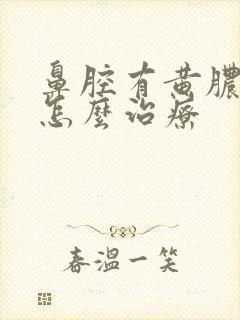 鼻腔有黄膿
怎麼治療
春溫一笑